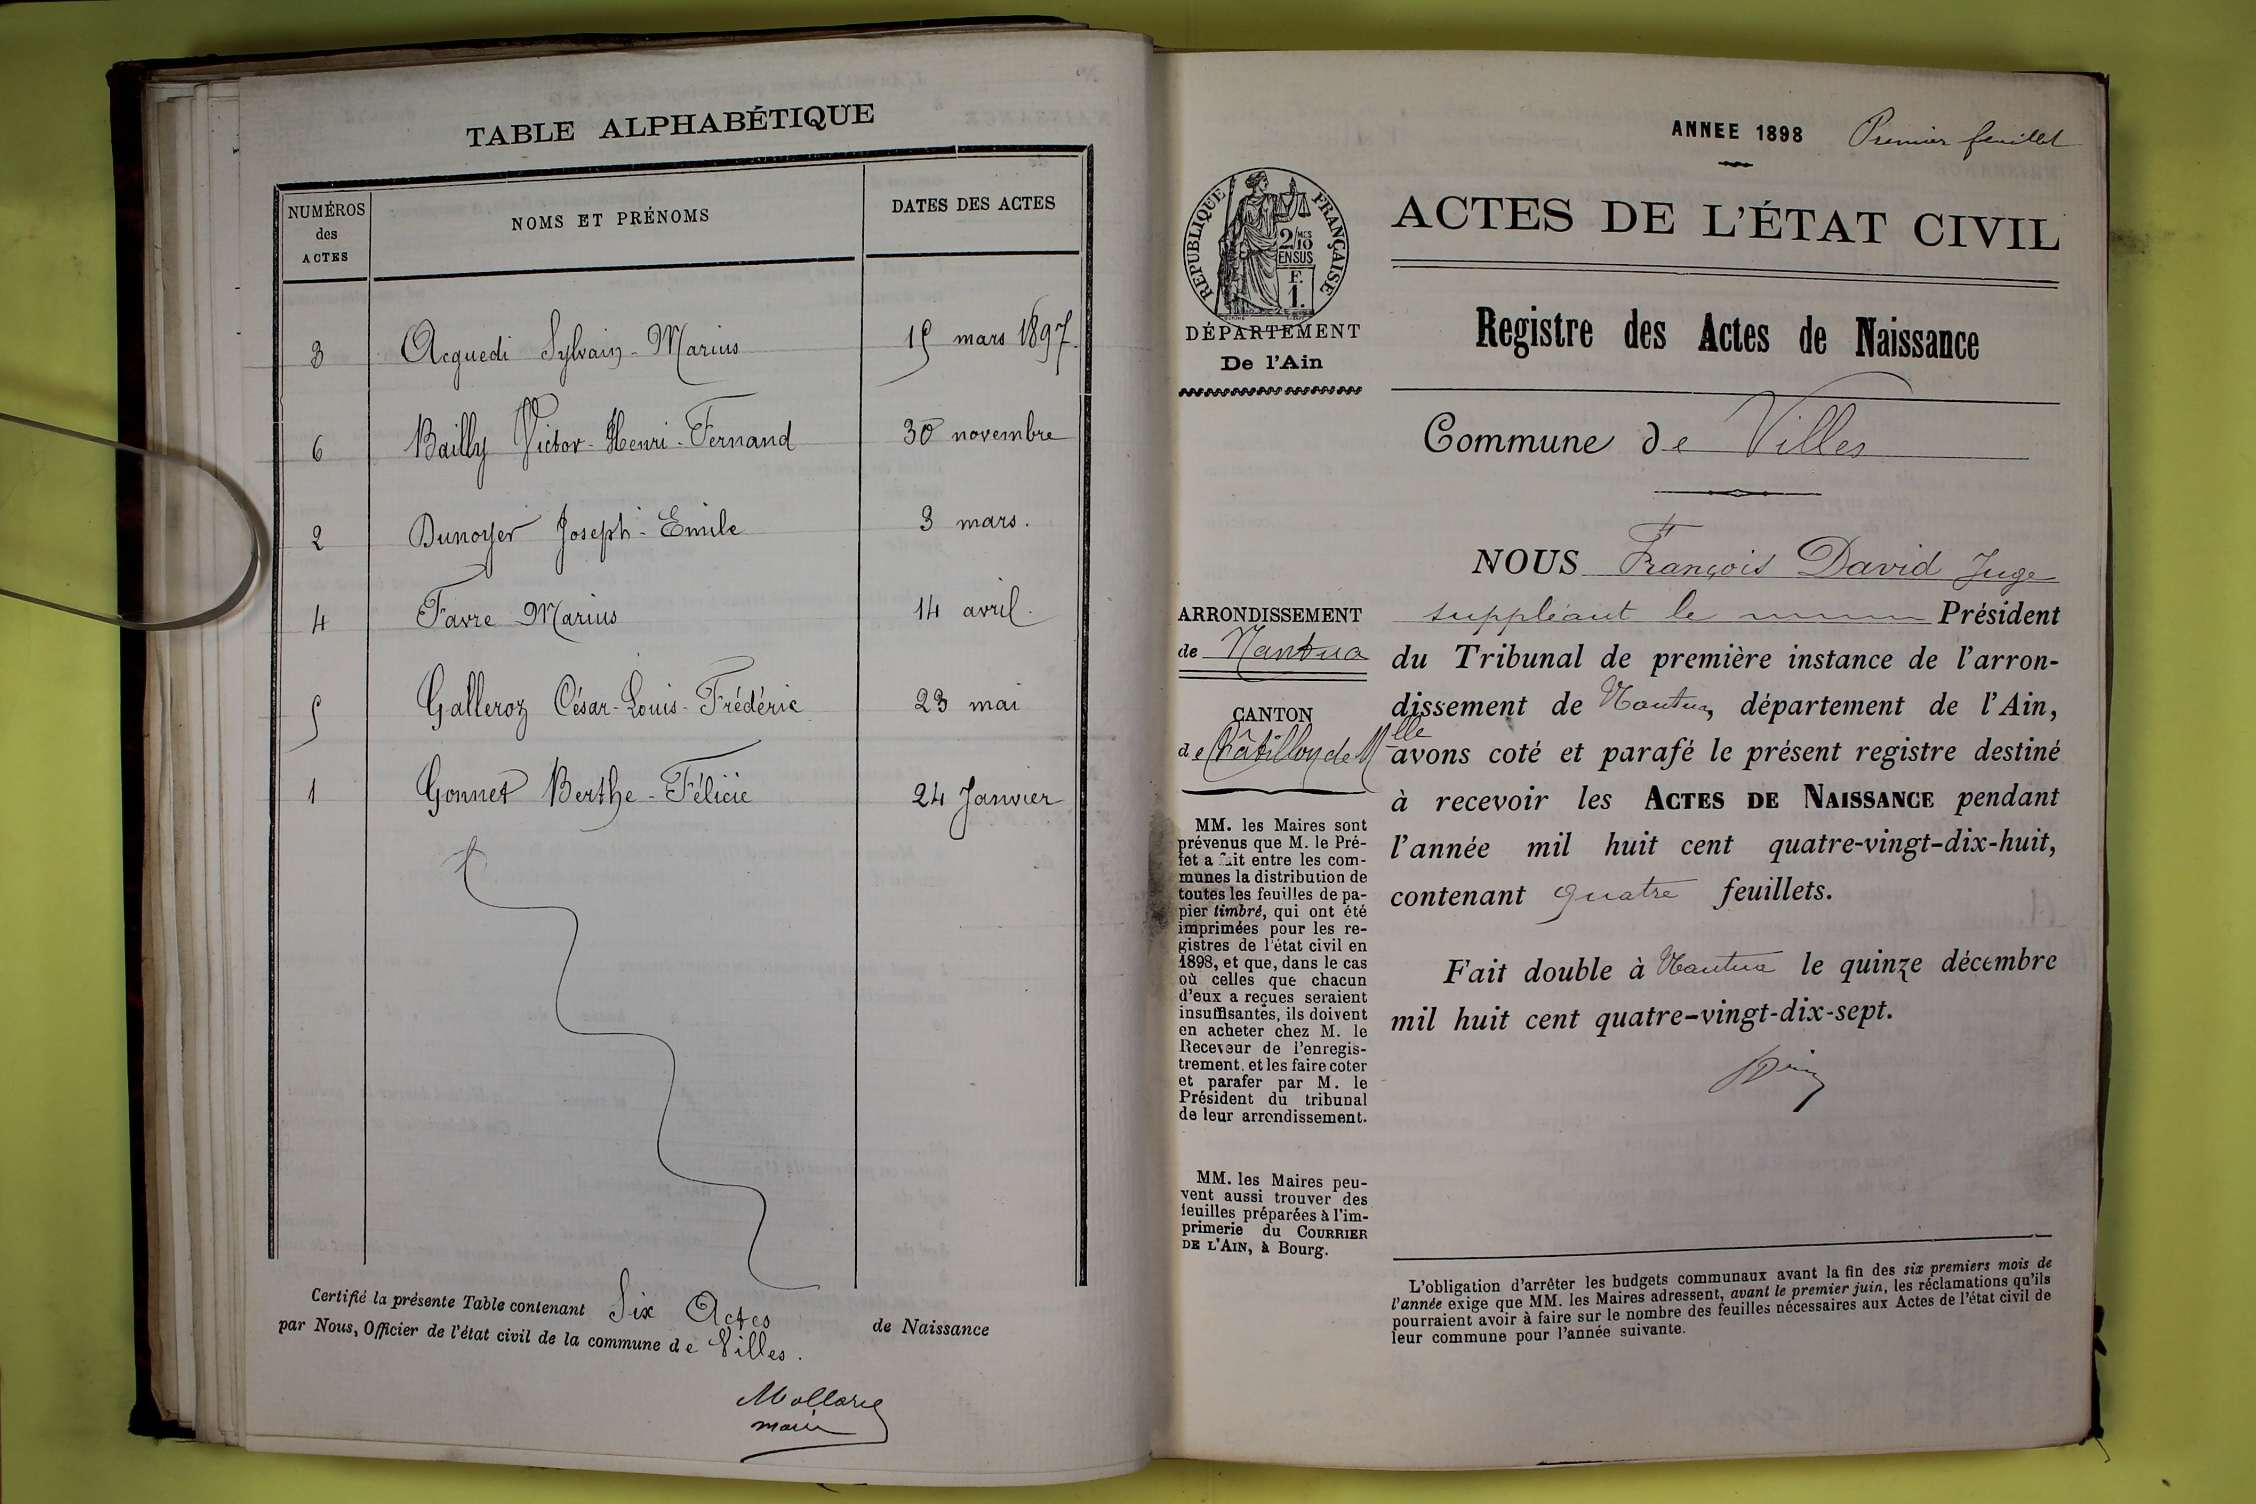 TABLE ALPHABÉTIQUE
NUMÉROS
des
ACTES
NOMS ET PRÉNOMS
DATES DES ACTES
3 Acquedi Sylvain-Marius 15 mars 1897.
6 Bailly Victor-Henri-Fernand 30 novembre
2 Dunoyer Joseph-Emile 3 mars.
4 Favre Marius 14 avril.
5 Galleroz César-Louis-Frédéric 23 mai
1 Gonnet Berthe-Félicie 24 Janvier
Certifié la présente Table contenant Six Actes de Naissance
par Nous, Officier de l'état civil de la commune de Villes.
maire
ANNEE 1898 Premier feuillet
RÉPUBLIQUE FRANÇAISE
2/10 MES
EN SUS
F.
1.
DÉPARTEMENT
De l'Ain
ARRONDISSEMENT
de Nantua
CANTON
de Châtillon de Mlle
MM. les Maires sont
prévenus que M. le Pré-
fet a fait entre les com-
munes la distribution de
toutes les feuilles de pa-
pier timbré, qui ont été
imprimées pour les re-
gistres de l'état civil en
1898, et que, dans le cas
où celles que chacun
d'eux a reçues seraient
insuffisantes, ils doivent
en acheter chez M. le
Receveur de l'enregis-
trement, et les faire coter
et parafer par M. le
Président du tribunal
de leur arrondissement.
MM. les Maires peu-
vent aussi trouver des
feuilles préparées à l'im-
primerie du COURRIER
DE L'AIN, à Bourg.
ACTES DE L'ÉTAT CIVIL
Registre des Actes de Naissance
Commune de Villes
NOUS François David Juge
suppléant le Président
du Tribunal de première instance de l'arron-
dissement de Nantua, département de l'Ain,
avons coté et parafé le présent registre destiné
à recevoir les ACTES DE NAISSANCE pendant
l'année mil huit cent quatre-vingt-dix-huit,
contenant quatre feuillets.
Fait double à Nantua le quinze décembre
mil huit cent quatre-vingt-dix-sept.
L'obligation d'arrêter les budgets communaux avant la fin des six premiers mois de
l'année exige que MM. les Maires adressent, avant le premier juin, les réclamations qu'ils
pourraient avoir à faire sur le nombre des feuilles nécessaires aux Actes de l'état civil de
leur commune pour l'année suivante.